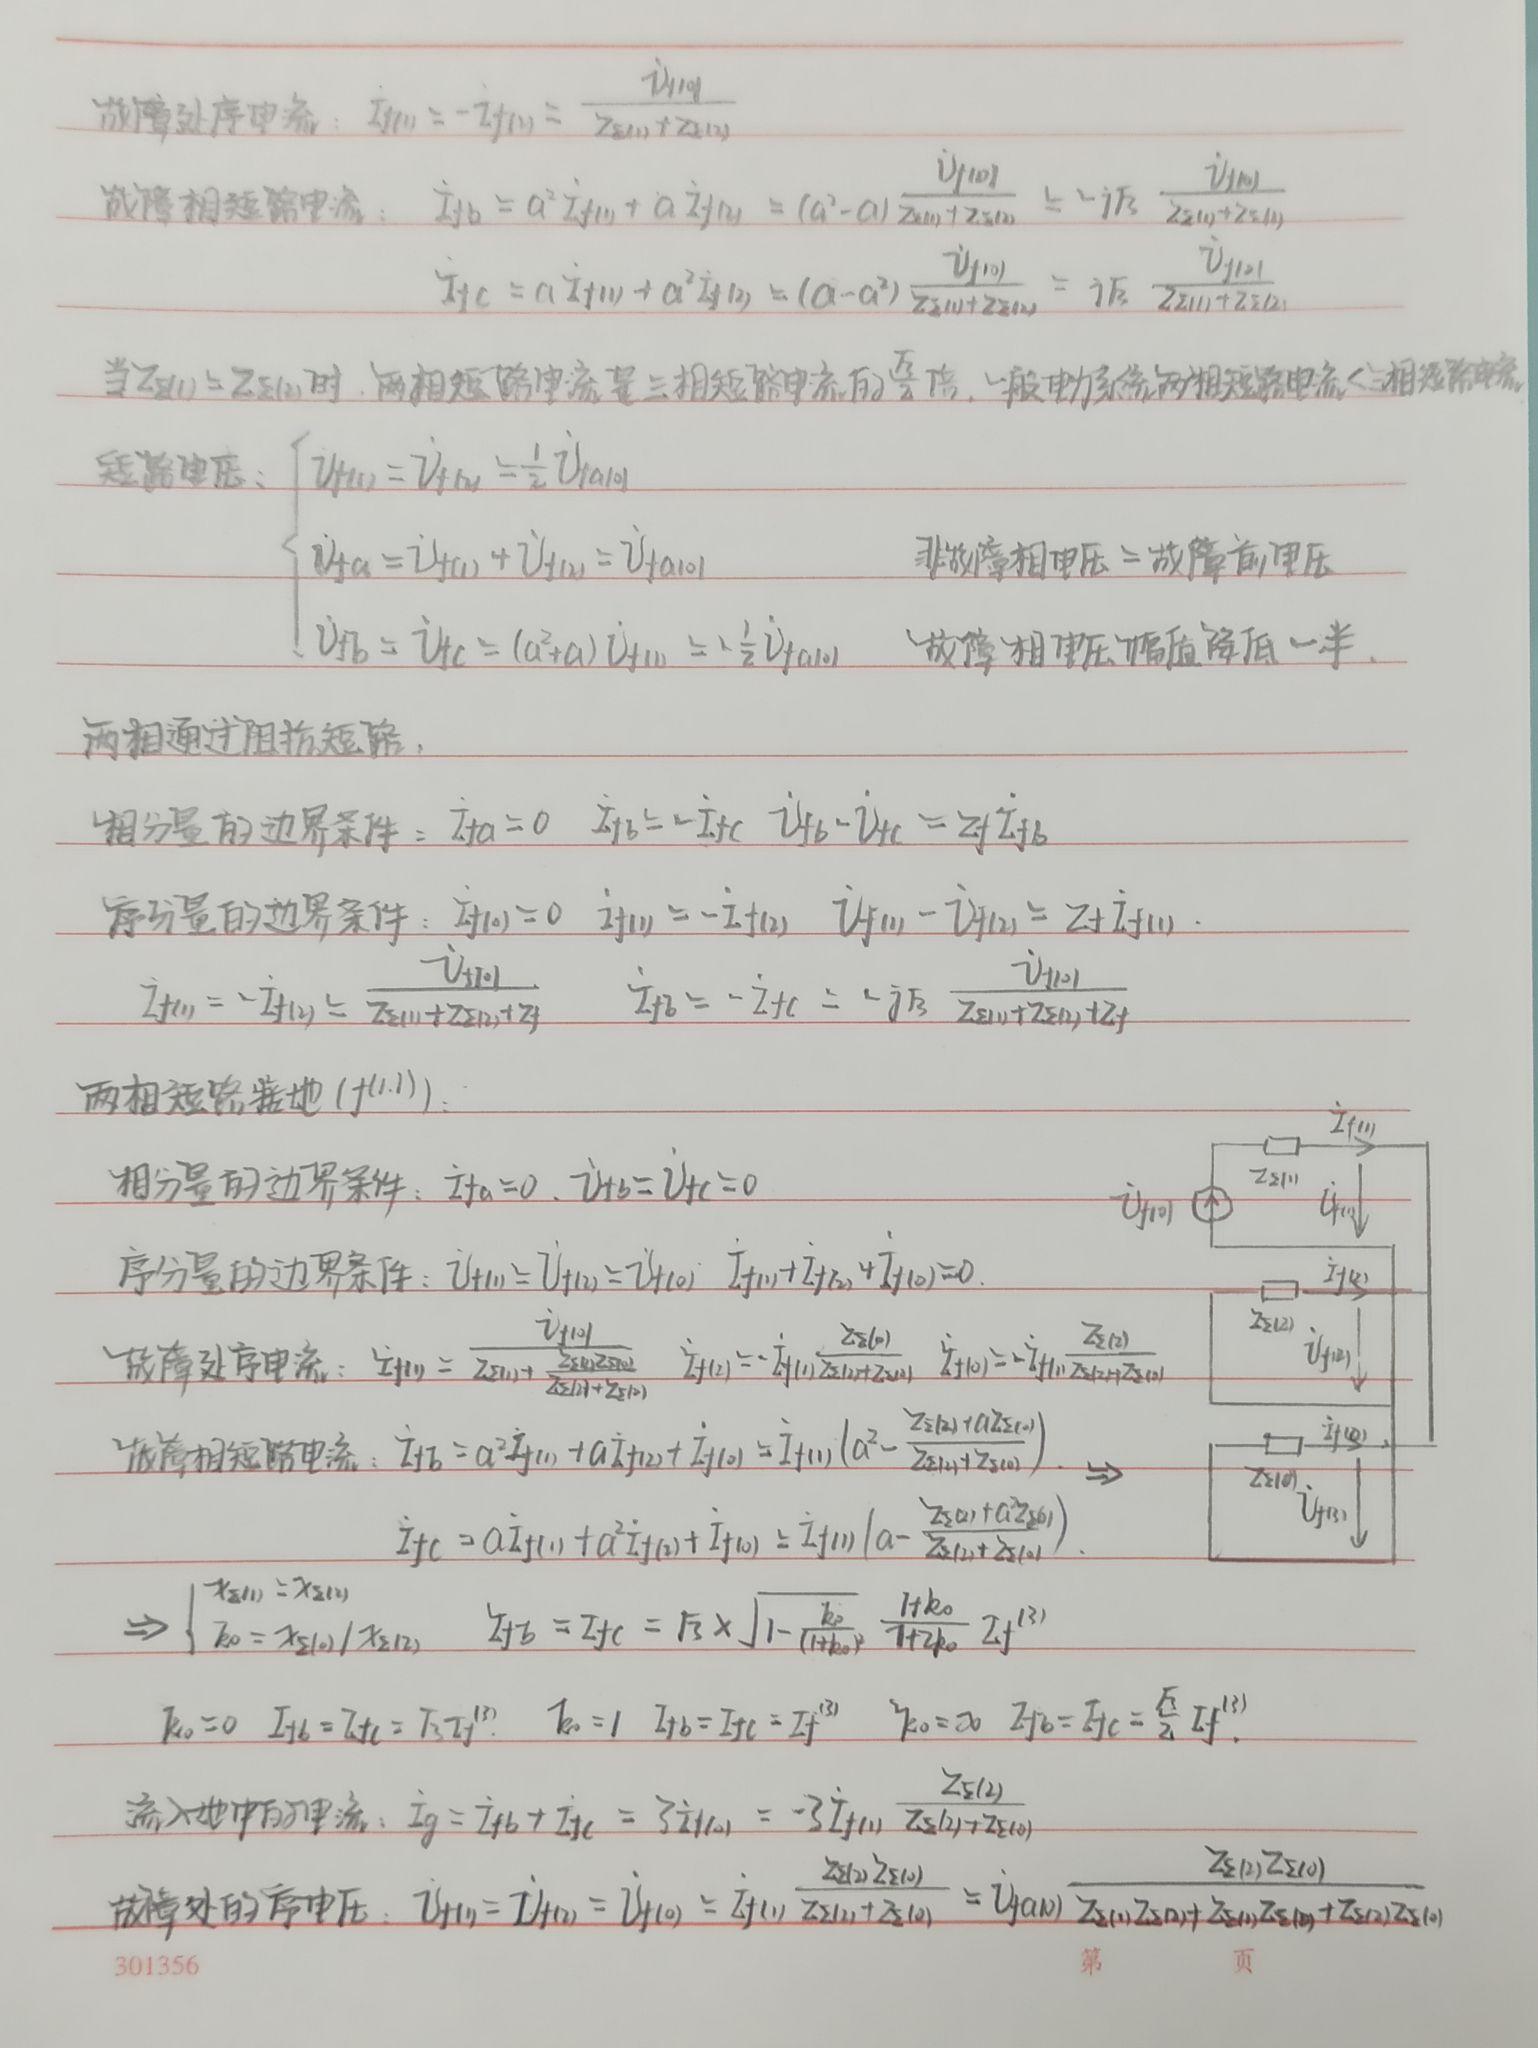 故障处序电流: İf(1) = -İf(2) = U̇f|0| / (ZΣ(1)+ZΣ(2))
故障相短路电流: İfb = a²İf(1) + aİf(2) = (a²-a) U̇f|0| / (ZΣ(1)+ZΣ(2)) = -j√3 U̇f|0| / (ZΣ(1)+ZΣ(2))
İfc = aİf(1) + a²İf(2) = (a-a²) U̇f|0| / (ZΣ(1)+ZΣ(2)) = j√3 U̇f|0| / (ZΣ(1)+ZΣ(2))
当ZΣ(1)=ZΣ(2)时.两相短路电流是三相短路电流的√3/2倍.一般电力系统两相短路电流<三相短路电流
短路电压: U̇f(1) = U̇f(2) = ½U̇fa|0|
U̇fa = U̇f(1) + U̇f(2) = U̇fa|0| 非故障相电压=故障前电压
U̇fb = U̇fc = (a²+a)U̇f(1) = -½U̇fa|0| 故障相电压幅值降低一半.
两相通过阻抗短路.
相分量的边界条件: İfa=0 İfb=-İfc U̇fb-U̇fc=zfİfb
序分量的边界条件: İf(0)=0 İf(1)=-İf(2) U̇f(1)-U̇f(2)=ZfİF(1).
İf(1) = -İf(2) = U̇f|0| / (ZΣ(1)+ZΣ(2)+Zf) İfb = -İfc = -j√3 U̇f|0| / (ZΣ(1)+ZΣ(2)+Zf)
两相短路接地(f(1.1)):
相分量的边界条件: İfa=0. U̇fb=U̇fc=0
序分量的边界条件: U̇f(1)=U̇f(2)=U̇f(0) İf(1)+İf(2)+İf(0)=0.
故障处序电流: İf(1) = U̇f|0| / (ZΣ(1)+ ZΣ(2)ZΣ(0)/(ZΣ(2)+ZΣ(0))) İf(2)=-İf(1) ZΣ(0)/(ZΣ(2)+ZΣ(0)) İf(0)=-İf(1) ZΣ(2)/(ZΣ(2)+ZΣ(0))
故障相短路电流: İfb = a²İf(1)+aİf(2)+İf(0) = İf(1)(a² - (ZΣ(2)+aZΣ(0))/(ZΣ(2)+ZΣ(0))). ⇒
İfc = aİf(1)+a²İf(2)+İf(0) = İf(1)(a - (ZΣ(2)+a²ZΣ(0))/(ZΣ(2)+ZΣ(0))).
İf(1)
ZΣ(1)
U̇f|0|
U̇f(1)
İf(2)
ZΣ(2)
U̇f(2)
ZΣ(0)
⇒ { xΣ(1)=xΣ(2)
k0=xΣ(0)/xΣ(2) Ifb = Ifc = √3 × √(1 - k0/(1+k0)²) (1+k0)/(1+2k0) If(3)
k0=0 Ifb=Ifc=√3If(3). k0=1 Ifb=Ifc=If(3) k0=∞ Ifb=Ifc=√3/2 If(3).
流入地中的电流: İg = İfb+İfc = 3İf(0) = -3İf(1) ZΣ(2)/(ZΣ(2)+ZΣ(0))
故障处的序电压: U̇f(1)=U̇f(2)=U̇f(0) = İf(1) ZΣ(2)ZΣ(0)/(ZΣ(2)+ZΣ(0)) = U̇fa|0| ZΣ(2)ZΣ(0)/(ZΣ(1)ZΣ(2)+ZΣ(1)ZΣ(0)+ZΣ(2)ZΣ(0))
301356 第 页